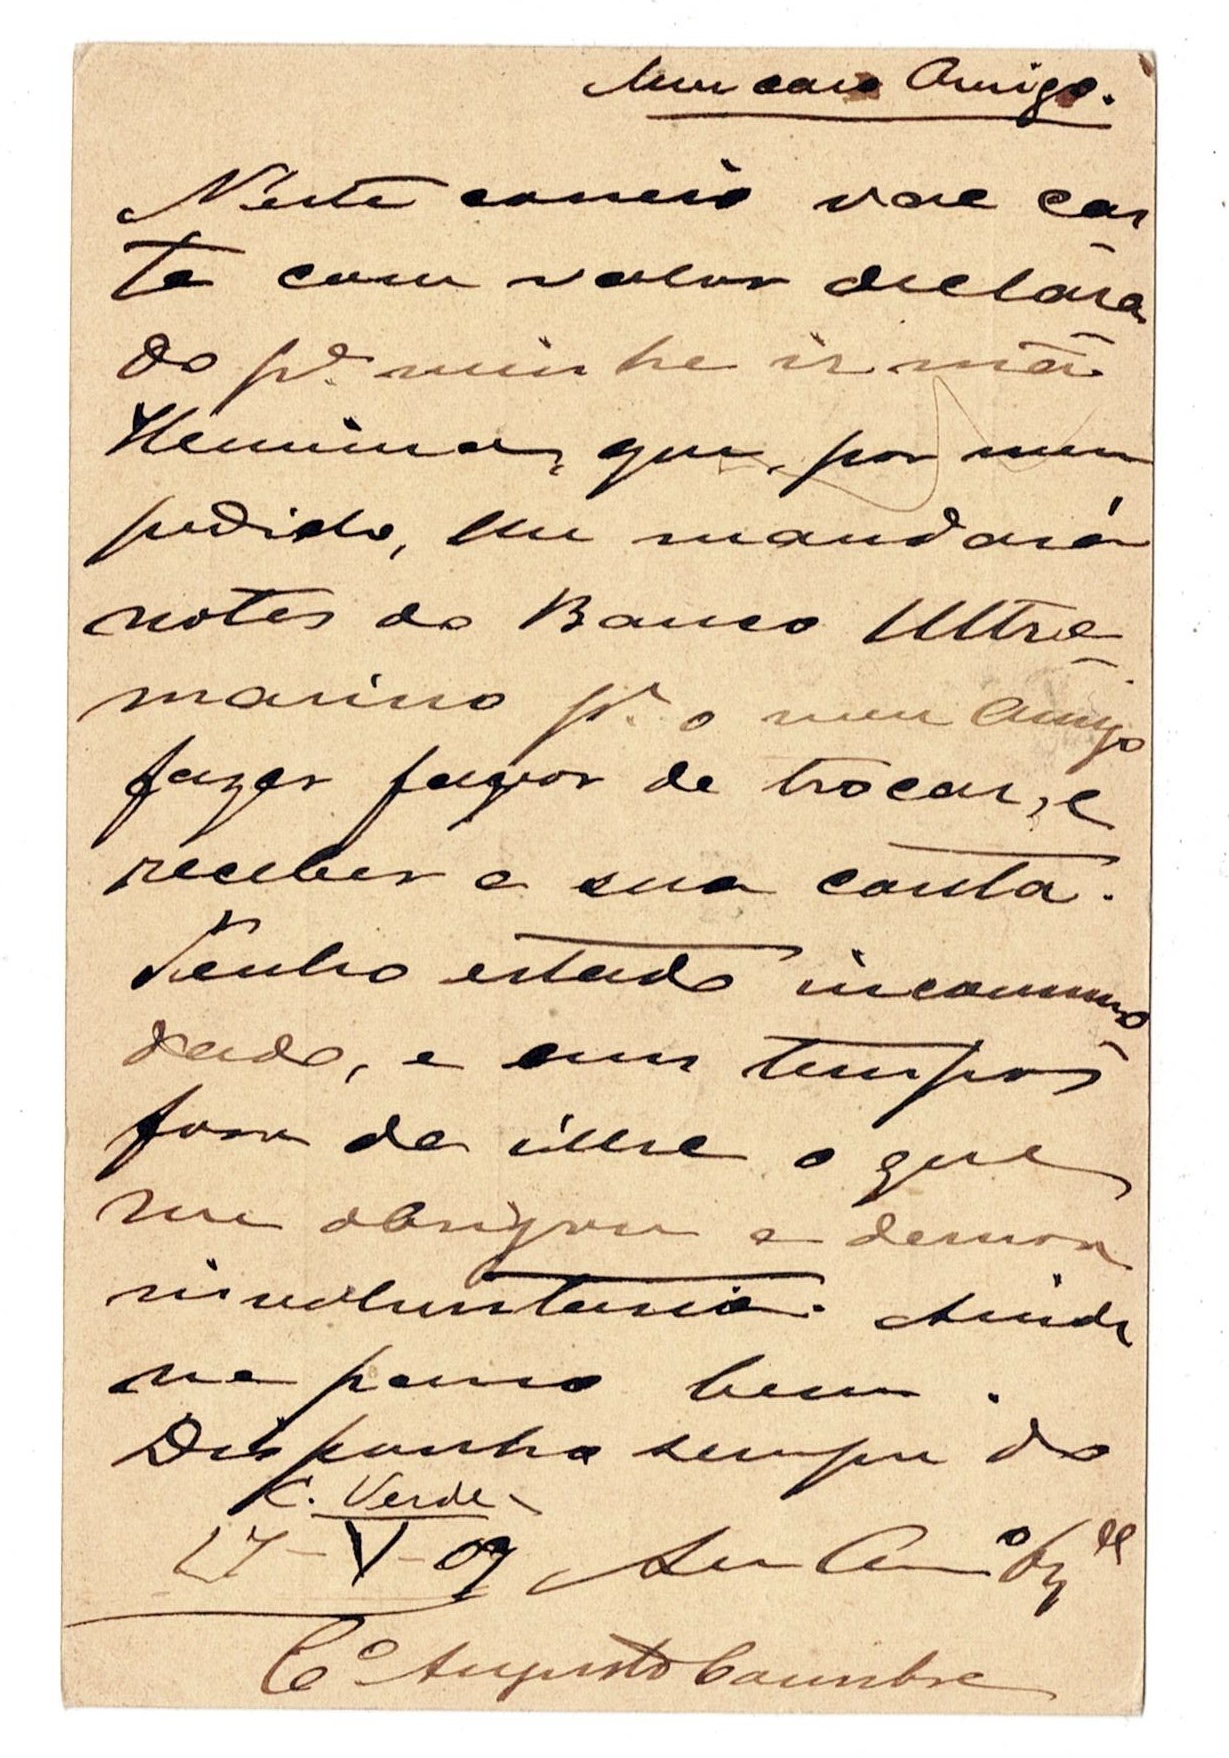 Meu caro Amigo.
Neste correio vae car
ta com valor declara
do pª. minha irmã
Herminia, que, por meu
pedido, lhe mandará
notas do Banco Ultra-
marino pª. o meu Amigo
fazer favor de trocar, e
receber a sua conta.
Tenho estado incommo
dado, e uns tempos
fora da ilha o que
me obrigou a demora
involuntaria. Ainda
na passo bem.
Disponha sempre do
C. Verde
27-V-09 Seu Amº
Cº Augusto Coimbra